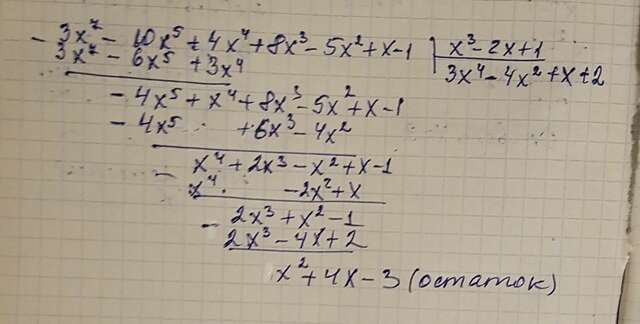 - 3x⁷ - 10x⁵ + 4x⁴ + 8x³ - 5x² + x - 1 | x³ - 2x + 1
3x⁷ - 6x⁵ + 3x⁴
3x⁴ - 4x² + x + 2
- 4x⁵ + x⁴ + 8x³ - 5x² + x - 1
- 4x⁵ + 6x³ - 4x²
x⁴ + 2x³ - x² + x - 1
- x⁴ - 2x² + x
- 2x³ + x² - 1
2x³ - 4x + 2
x² + 4x - 3 (остаток)